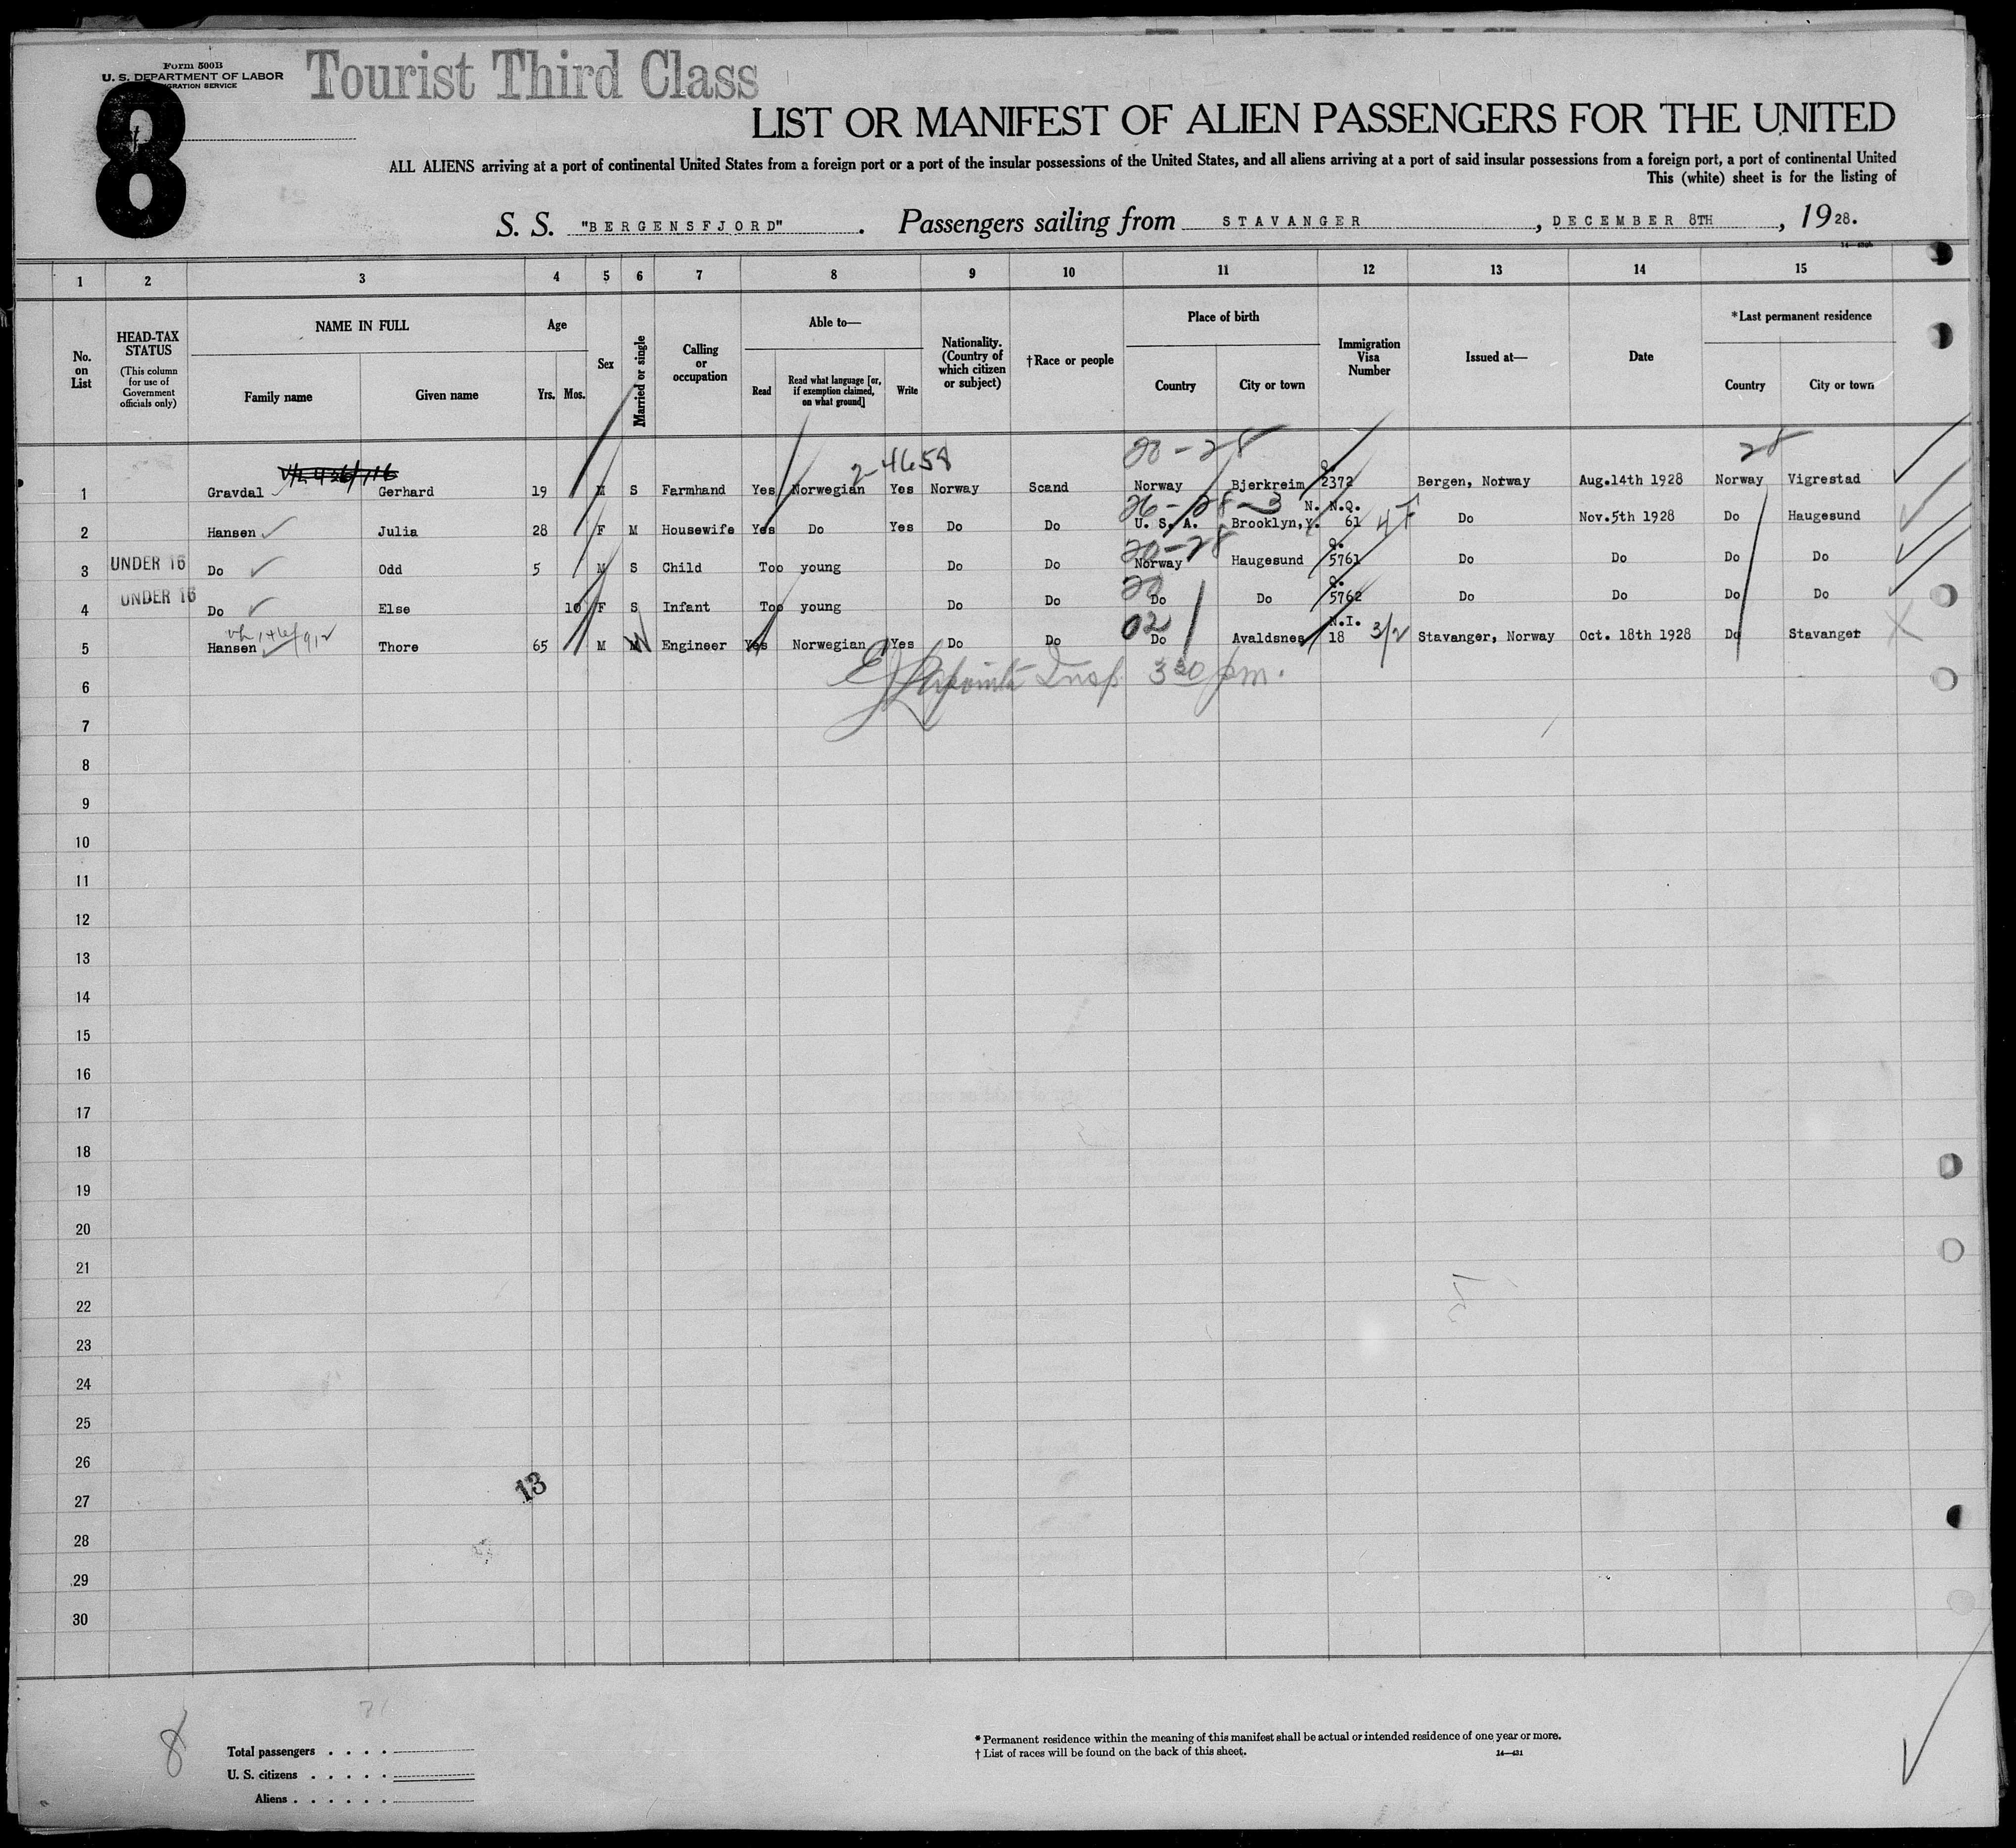 Form 500B
U. S. DEPARTMENT OF LABOR
IGRATION SERVICE
Tourist Third Class
8
LIST OR MANIFEST OF ALIEN PASSENGERS FOR THE UNITED
ALL ALIENS arriving at a port of continental United States from a foreign port or a port of the insular possessions of the United States, and all aliens arriving at a port of said insular possessions from a foreign port, a port of continental United
This (white) sheet is for the listing of
S. S. "BERGENSFJORD". Passengers sailing from STAVANGER, DECEMBER 8TH, 1928.
1 2 3 4 5 6 7 8 9 10 11 12 13 14 15
No. on List
HEAD-TAX STATUS
(This column for use of Government officials only)
NAME IN FULL
Family name Given name
Age
Yrs. Mos.
Sex
Married or single
Calling or occupation
Able to—
Read
Read what language [or, if exemption claimed, on what ground]
Write
Nationality. (Country of which citizen or subject)
†Race or people
Place of birth
Country City or town
Immigration Visa Number
Issued at—
Date
*Last permanent residence
Country City or town
2-4658 20-28 28
1 Gravdal Gerhard 19 M S Farmhand Yes Norwegian Yes Norway Scand Norway Bjerkreim Q. 2372 Bergen, Norway Aug.14th 1928 Norway Vigrestad
26-28-3
2 Hansen Julia 28 F M Housewife Yes Do Yes Do Do U. S. A. Brooklyn, N. Y. N.Q. 61 4 F Do Nov.5th 1928 Do Haugesund
20-28
3 UNDER 16 Do Odd 5 M S Child Too young Do Do Norway Haugesund Q. 5761 Do Do Do Do
20
4 UNDER 16 Do Else 10 F S Infant Too young Do Do Do Do Q. 5762 Do Do Do Do
02
5 Hansen Thore 65 M M Engineer Yes Norwegian Yes Do Do Do Avaldsnes N.I. 18 3/2 Stavanger, Norway Oct. 18th 1928 Do Stavanger
Insp. 3 30 pm.
6
7
8
9
10
11
12
13
14
15
16
17
18
19
20
21
22
23
24
25
26
13
27
28
29
30
8
Total passengers
U. S. citizens
Aliens
* Permanent residence within the meaning of this manifest shall be actual or intended residence of one year or more.
† List of races will be found on the back of this sheet.
14—431